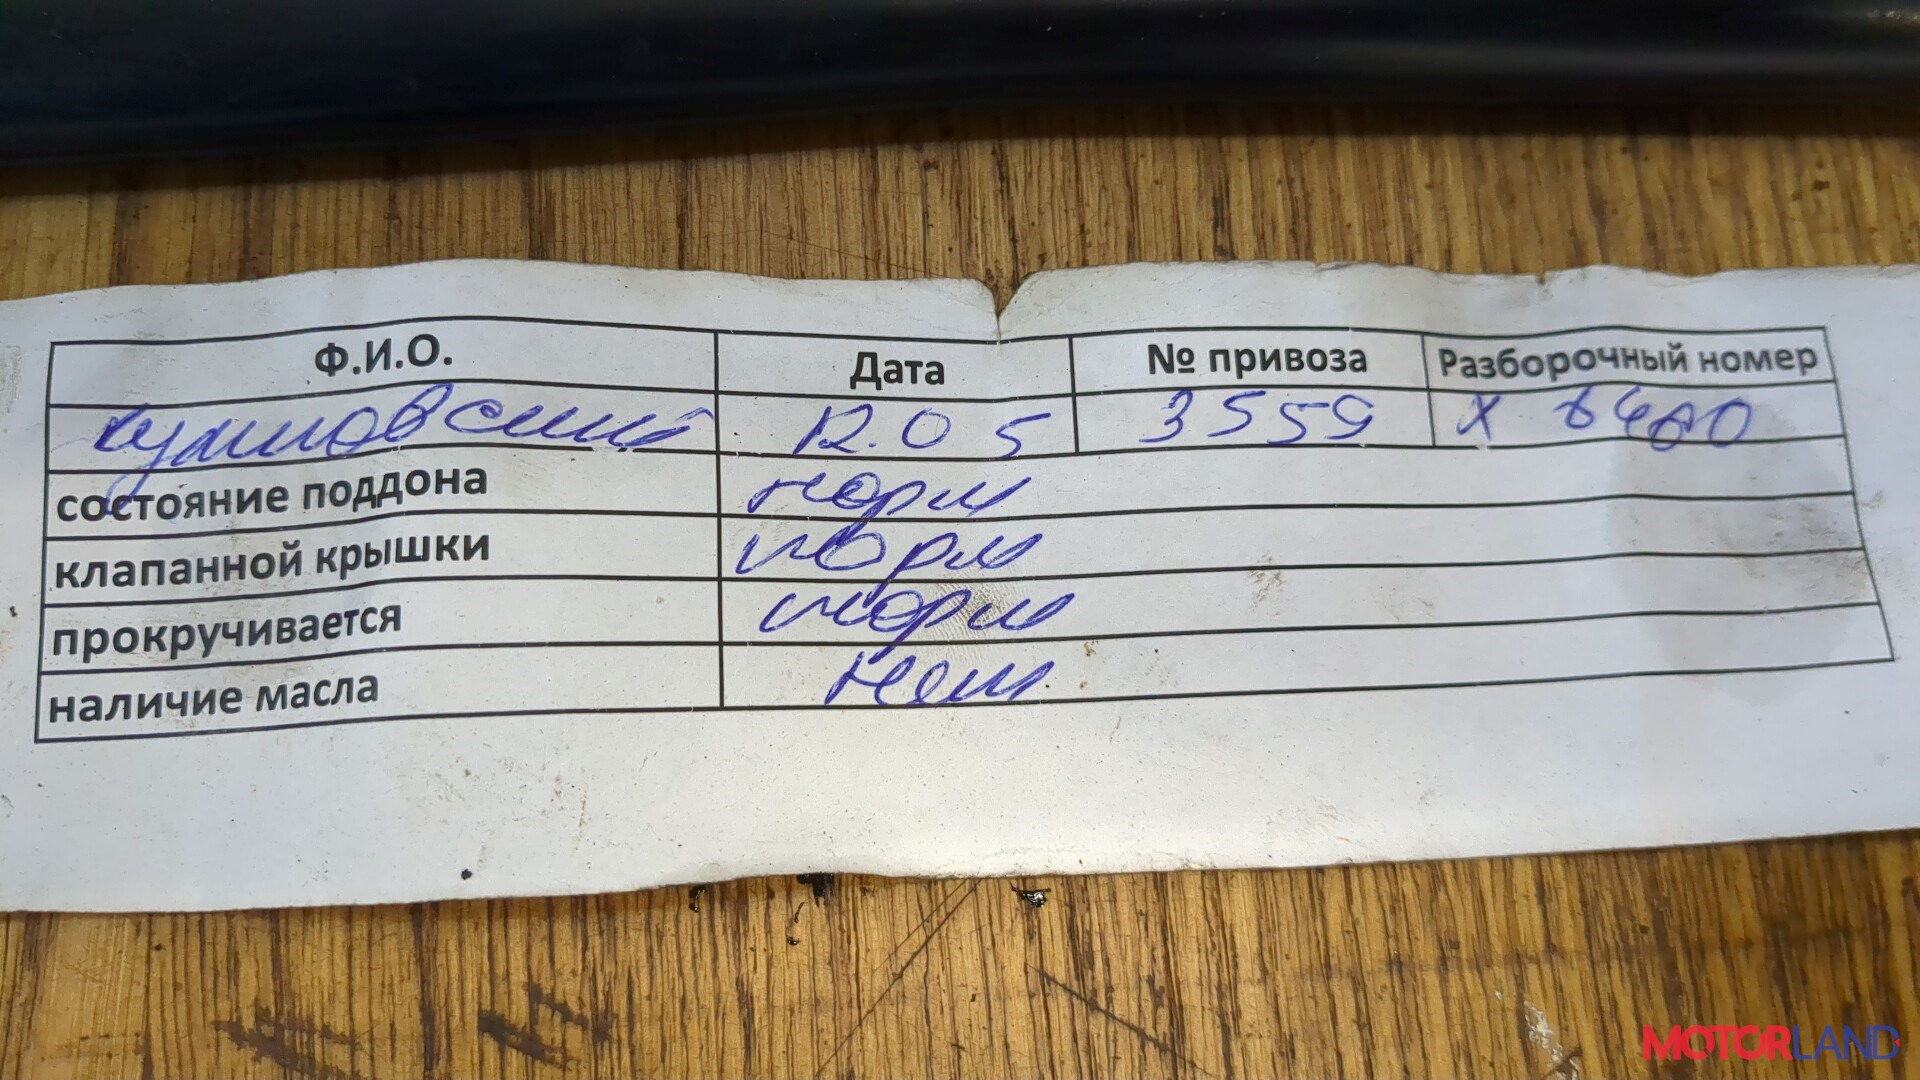 Ф.И.О. Дата № привоза Разборочный номер
12.05 3559 х 8460
состояние поддона норм
клапанной крышки норм
прокручивается норм
наличие масла нет
MOTORLAND